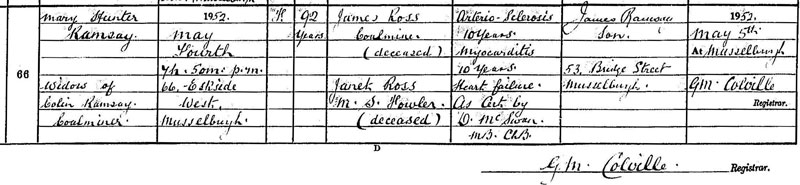 Mary Hunter 1952. F. 92 James Ross Arterio-Sclerosis James Ramsay 1952.
Ramsay. May Years Coalminer 10 Years Son. May 5th
Fourth (deceased) Myocarditis At Musselburgh
7h. 50m. p.m. 10 Years 53, Bridge Street
66 Widow of 66, Eskside Janet Ross Heart failure. Musselburgh. G.M. Colville
Colin Ramsay West, M. S. Fowler. As Cert by Registrar.
Coalminer. Musselburgh. (deceased) D. McSwan
M.B. Ch.B.
D
G.M. Colville. Registrar.